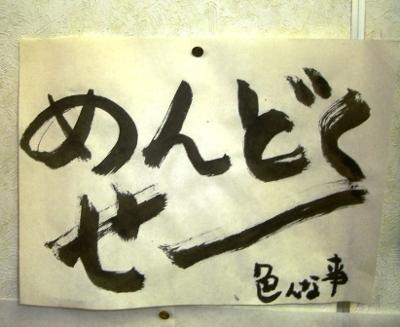 めんどく
せー
色んな事